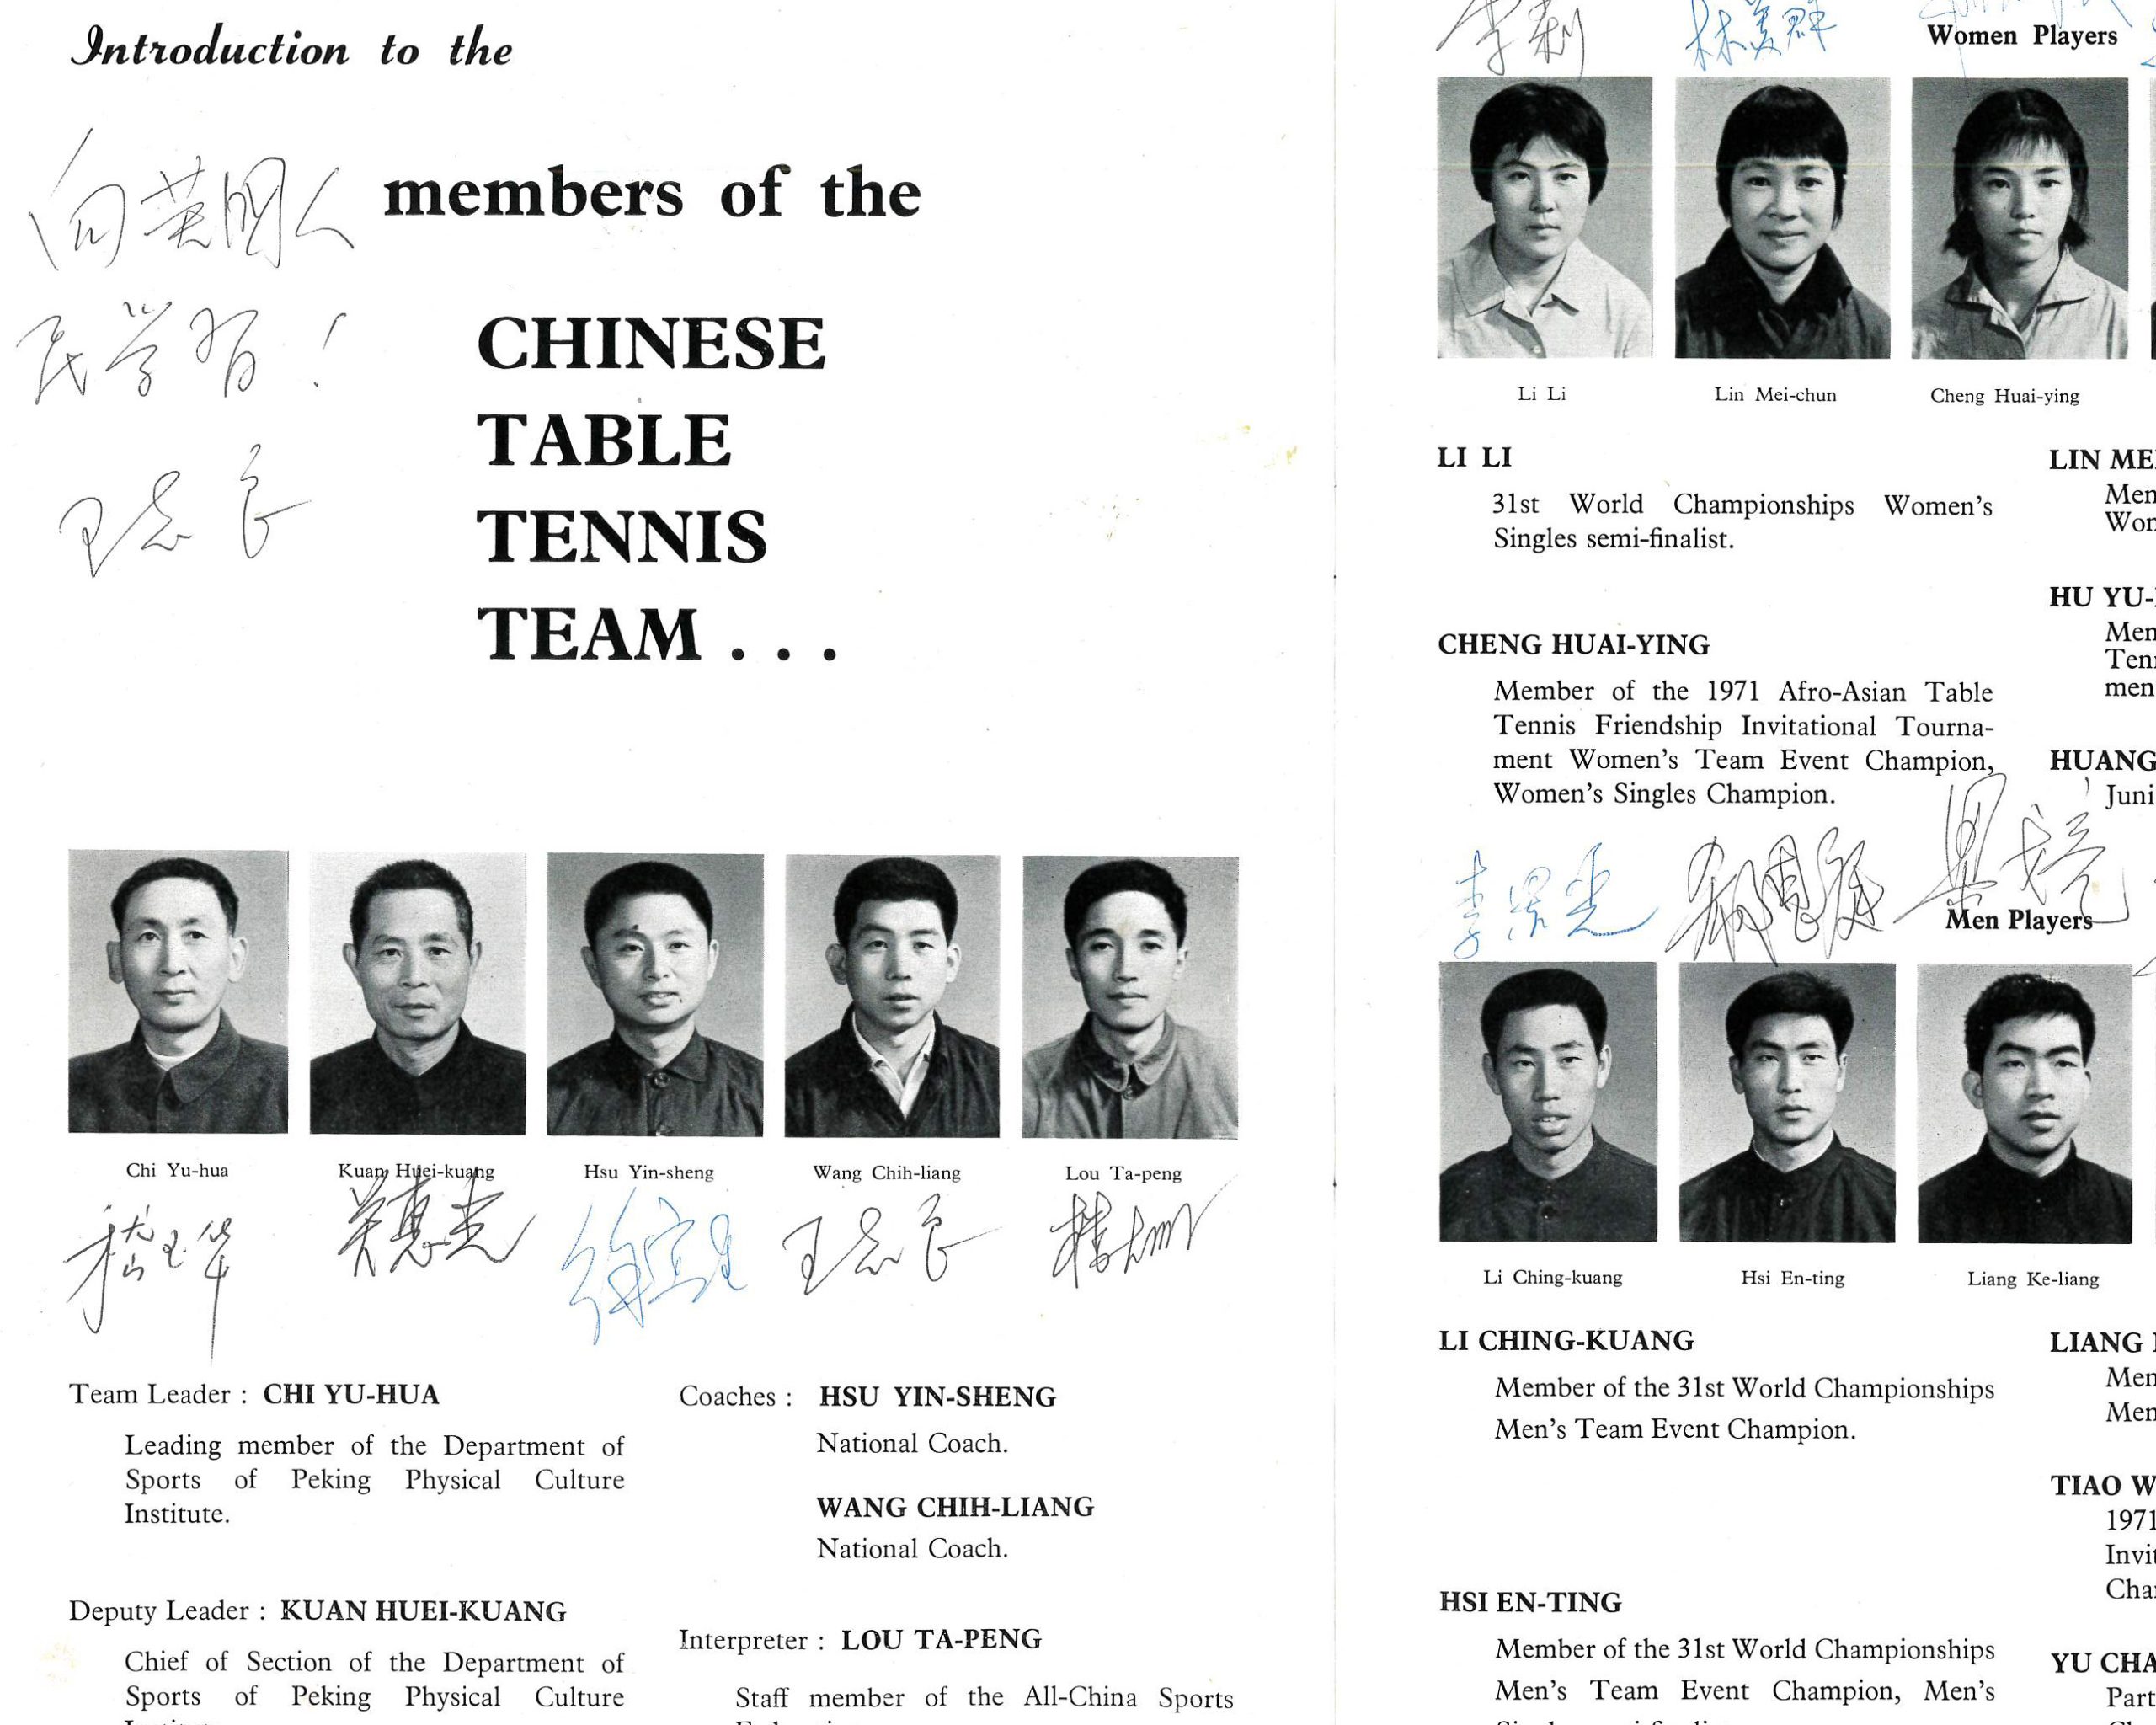 Introduction to the
members of the
CHINESE
TABLE
TENNIS
TEAM . . .
向英国人
民学习！
王志良
Chi Yu-hua
Kuan Huei-kuang
Hsu Yin-sheng
Wang Chih-liang
Lou Ta-peng
嵇玉华
关惠光
徐寅生
王志良
楼大鹏
Team Leader : CHI YU-HUA
Leading member of the Department of
Sports of Peking Physical Culture
Institute.
Deputy Leader : KUAN HUEI-KUANG
Chief of Section of the Department of
Sports of Peking Physical Culture
Coaches : HSU YIN-SHENG
National Coach.
WANG CHIH-LIANG
National Coach.
Interpreter : LOU TA-PENG
Staff member of the All-China Sports
李莉
林美群
Women Players
Li Li
Lin Mei-chun
Cheng Huai-ying
LI LI
31st World Championships Women's
Singles semi-finalist.
CHENG HUAI-YING
Member of the 1971 Afro-Asian Table
Tennis Friendship Invitational Tourna-
ment Women's Team Event Champion,
Women's Singles Champion.
LIN ME
Men
Wor
HU YU-
Men
Ten
men
HUANG
Juni
李景光
郗恩庭
梁戈亮
Men Players
Li Ching-kuang
Hsi En-ting
Liang Ke-liang
LI CHING-KUANG
Member of the 31st World Championships
Men's Team Event Champion.
HSI EN-TING
Member of the 31st World Championships
Men's Team Event Champion, Men's
LIANG
Men
Men
TIAO W
1971
Invit
Cha
YU CHA
Part